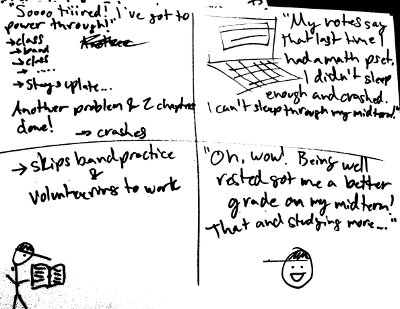 Soooo tiiired! I've got to
power through...
→ class
→ band
→ class
→ ....
→ Stays up late...
Another problem & 2 chapters
done!
→ crashes
"My notes say
that last time I
had a math pset,
I didn't sleep
enough and crashed.
I can't sleep through my midterm!"
→ skips band practice
&
volunteering to work
"Oh, wow! Being well
rested got me a better
grade on my midterm!
That and studying more..."